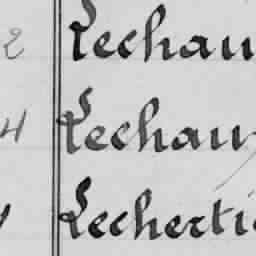 2 Lechau
4 Lechau
Lecherti